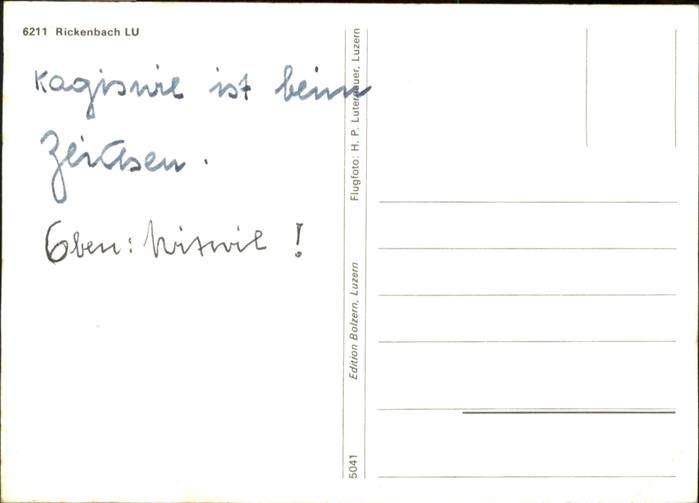 6211 Rickenbach LU
Kagiswil ist beim
Zeichen.
Oben: Witwil !
Flugfoto: H. P. Luterbauer, Luzern
Edition Bolzern, Luzern
5041